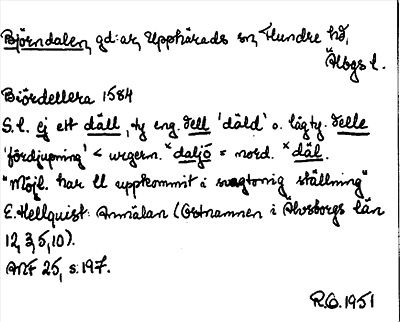 Björndalen, gd:ar, Upphärads sn, Flundre hd,
Älvbgs l.
Biördellera 1584
S.l. ej ett däll, ty eng. dell 'däld' o. lågty. delle
'fördjupning' < urgerm. *daljō = nord. *däl.
"Möjl. har ll uppkommit i svagtonig ställning"
E. Hellquist: Anmälan (Ortnamnen i Älvsborgs län
12, 3, 5, 10).
ANF 25, s. 197.
R.O. 1951